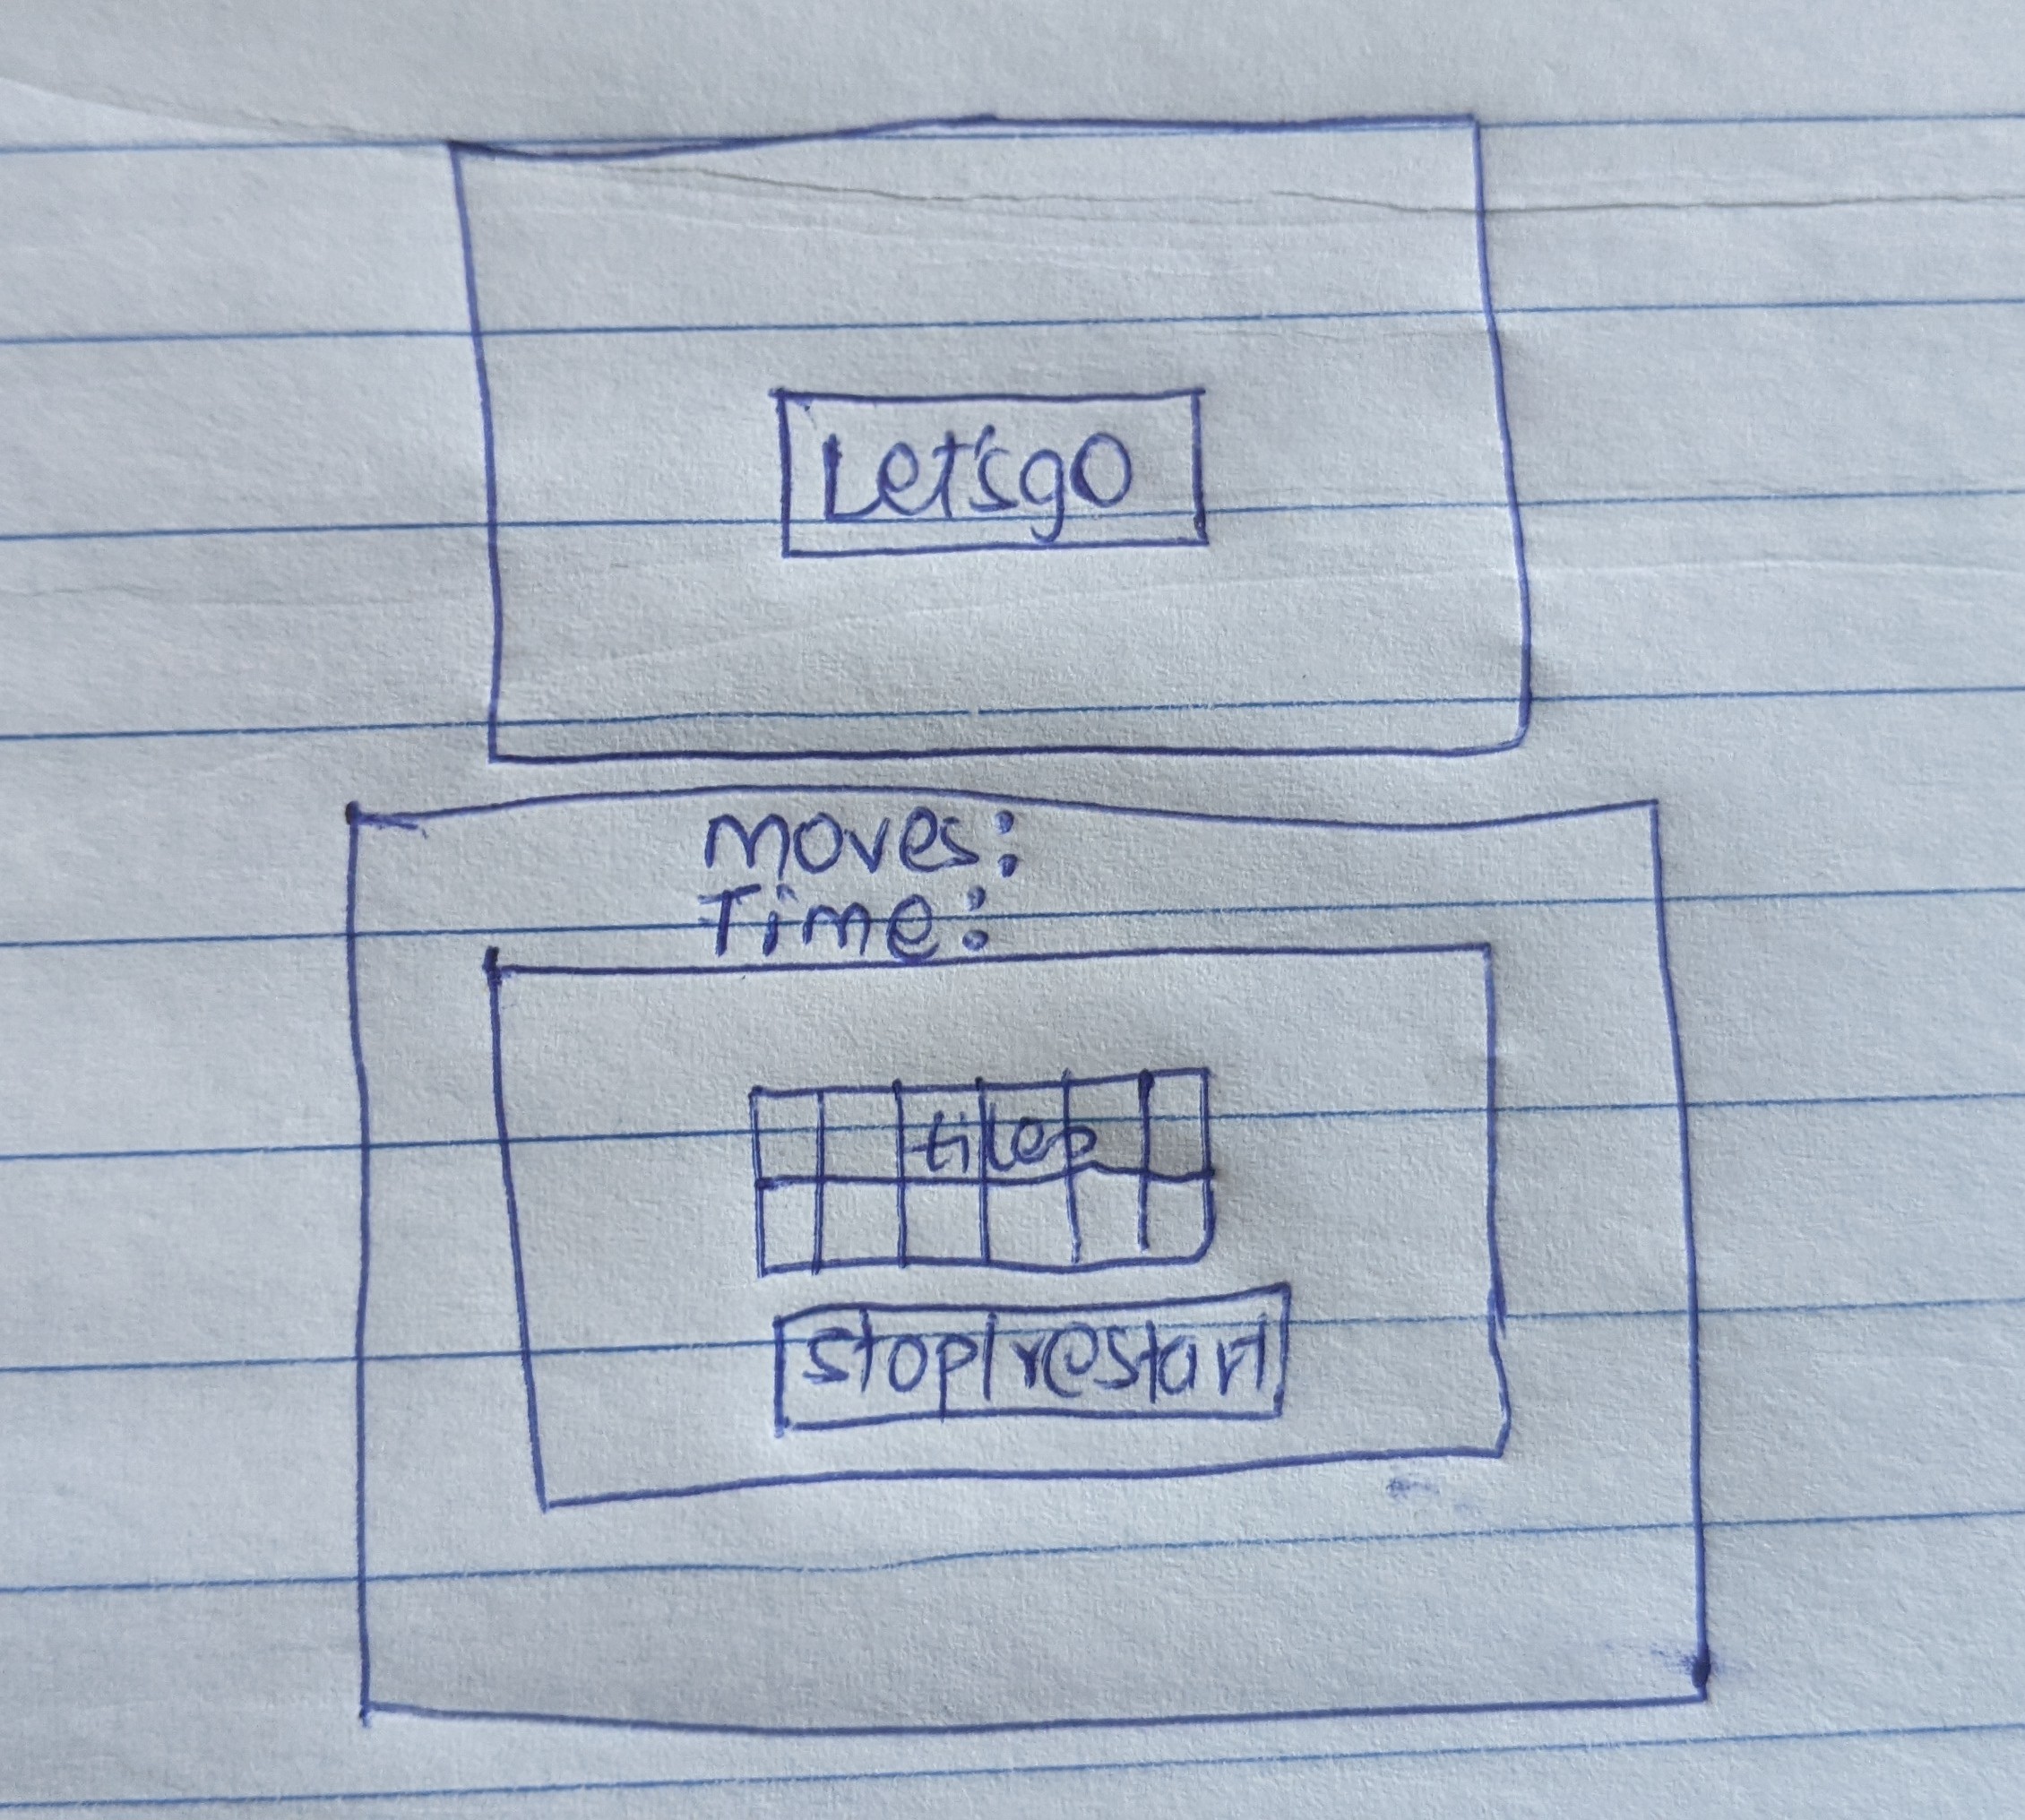 Let'sgo
moves:
Time:
tiles
stop/restart